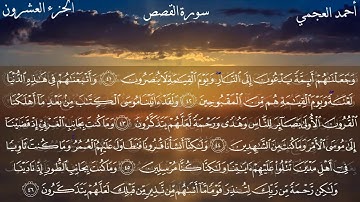 أحمد العجمي
سورة القصص
الجزء العشرون
وَجَعَلْنَٰهُمْ أَئِمَّةً يَدْعُونَ إِلَى ٱلنَّارِ وَيَوْمَ ٱلْقِيَٰمَةِ لَا يُنصَرُونَ ٤١ وَأَتْبَعْنَٰهُمْ فِى هَٰذِهِ ٱلدُّنْيَا
لَعْنَةً وَيَوْمَ ٱلْقِيَٰمَةِ هُم مِّنَ ٱلْمَقْبُوحِينَ ٤٢ وَلَقَدْ ءَاتَيْنَا مُوسَى ٱلْكِتَٰبَ مِنۢ بَعْدِ مَآ أَهْلَكْنَا
ٱلْقُرُونَ ٱلْأُولَىٰ بَصَآئِرَ لِلنَّاسِ وَهُدًى وَرَحْمَةً لَّعَلَّهُمْ يَتَذَكَّرُونَ ٤٣ وَمَا كُنتَ بِجَانِبِ ٱلْغَرْبِىِّ إِذْ قَضَيْنَآ
إِلَىٰ مُوسَى ٱلْأَمْرَ وَمَا كُنتَ مِنَ ٱلشَّٰهِدِينَ ٤٤ وَلَٰكِنَّآ أَنشَأْنَا قُرُونًا فَتَطَاوَلَ عَلَيْهِمُ ٱلْعُمُرُ وَمَا كُنتَ ثَاوِيًا
فِىٓ أَهْلِ مَدْيَنَ تَتْلُوا۟ عَلَيْهِمْ ءَايَٰتِنَا وَلَٰكِنَّا كُنَّا مُرْسِلِينَ ٤٥ وَمَا كُنتَ بِجَانِبِ ٱلطُّورِ إِذْ نَادَيْنَا
وَلَٰكِن رَّحْمَةً مِّن رَّبِّكَ لِتُنذِرَ قَوْمًا مَّآ أَتَىٰهُم مِّن نَّذِيرٍ مِّن قَبْلِكَ لَعَلَّهُمْ يَتَذَكَّرُونَ ٤٦